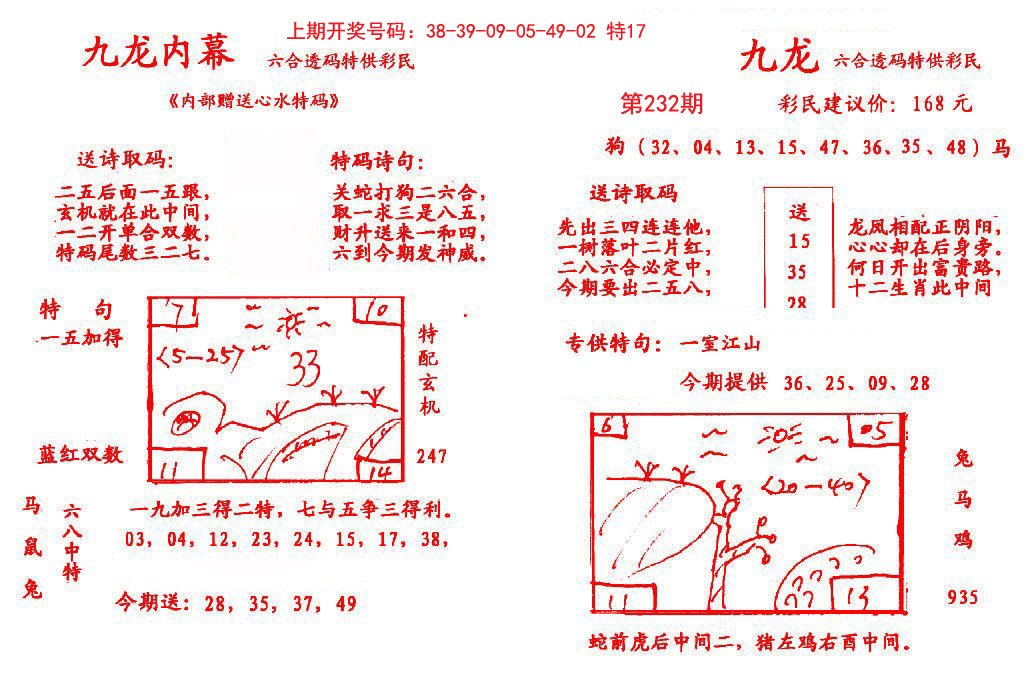 上期开奖号码：38-39-09-05-49-02 特17
九龙内幕 六合透码特供彩民
《内部赠送心水特码》
送诗取码：
二五后面一五跟，
玄机就在此中间，
一二开单合双数，
特码尾数三二七。
特码诗句：
关蛇打狗二六合，
取一求三是八五，
财升送来一和四，
六到今期发神威。
特 句
一五加得
蓝红双数
17
10
<5-25>
33
11
14
特配玄机
247
马鼠兔
六八中特
一九加三得二特，七与五争三得利。
03，04，12，23，24，15，17，38，
今期送：28，35，37，49
九龙 六合透码特供彩民
第232期
彩民建议价：168元
狗（32、04、13、15、47、36、35、48）马
送诗取码
先出三四连连他，
一树落叶二片红，
二八六合必定中，
今期要出二五八，
送
15
35
28
龙凤相配正阴阳，
心心却在后身旁。
何日开出富贵路，
十二生肖此中间
专供特句：一室江山
今期提供 36、25、09、28
6
05
<20-40>
11
13
兔
马
鸡
935
蛇前虎后中间二，猪左鸡右酉中间。